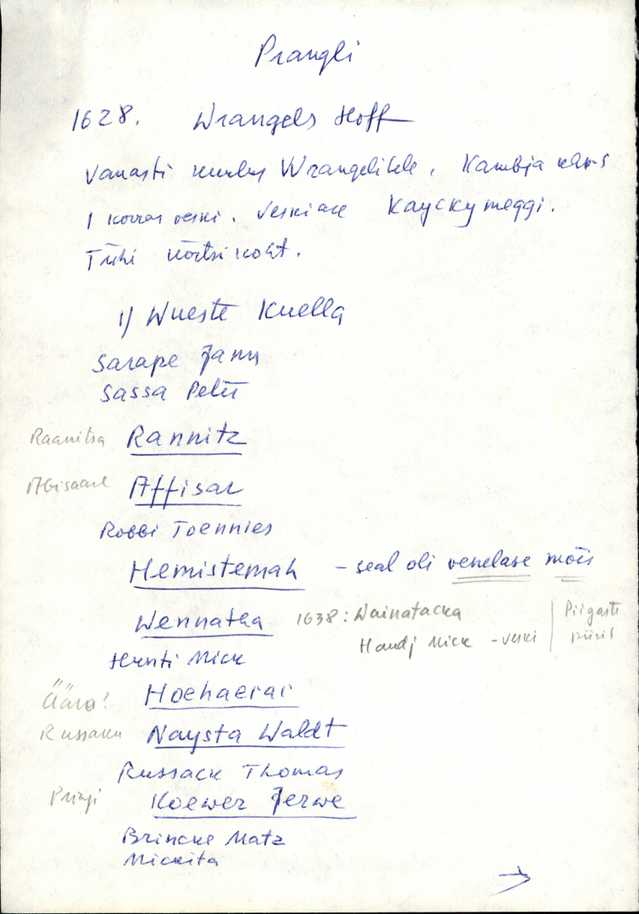 Prangli
1628. Wrangels Hoff
Vanasti kuulus Wrangelitele, Kambja
1 korras veski. Veskiase Kayckymeggi.
Tühi kõrtsi koht.
1) Wueste Kuella
Sarape Jann
Sassa Peter
Raanitsa Rannitz
Abisaare Affisar
Robbi Toennies
Hemistemah - seal oli venelase mõis
Wennatka 1638: Wainatacka | Piigaste
Handj Nick - veski | piiril
Hunti Nick
Äära? Hoehaerar
Russaku Naysta Waldt
Russack Thomas
Pringi Koewer Jerwe
Brincke Matz
Nickita
→